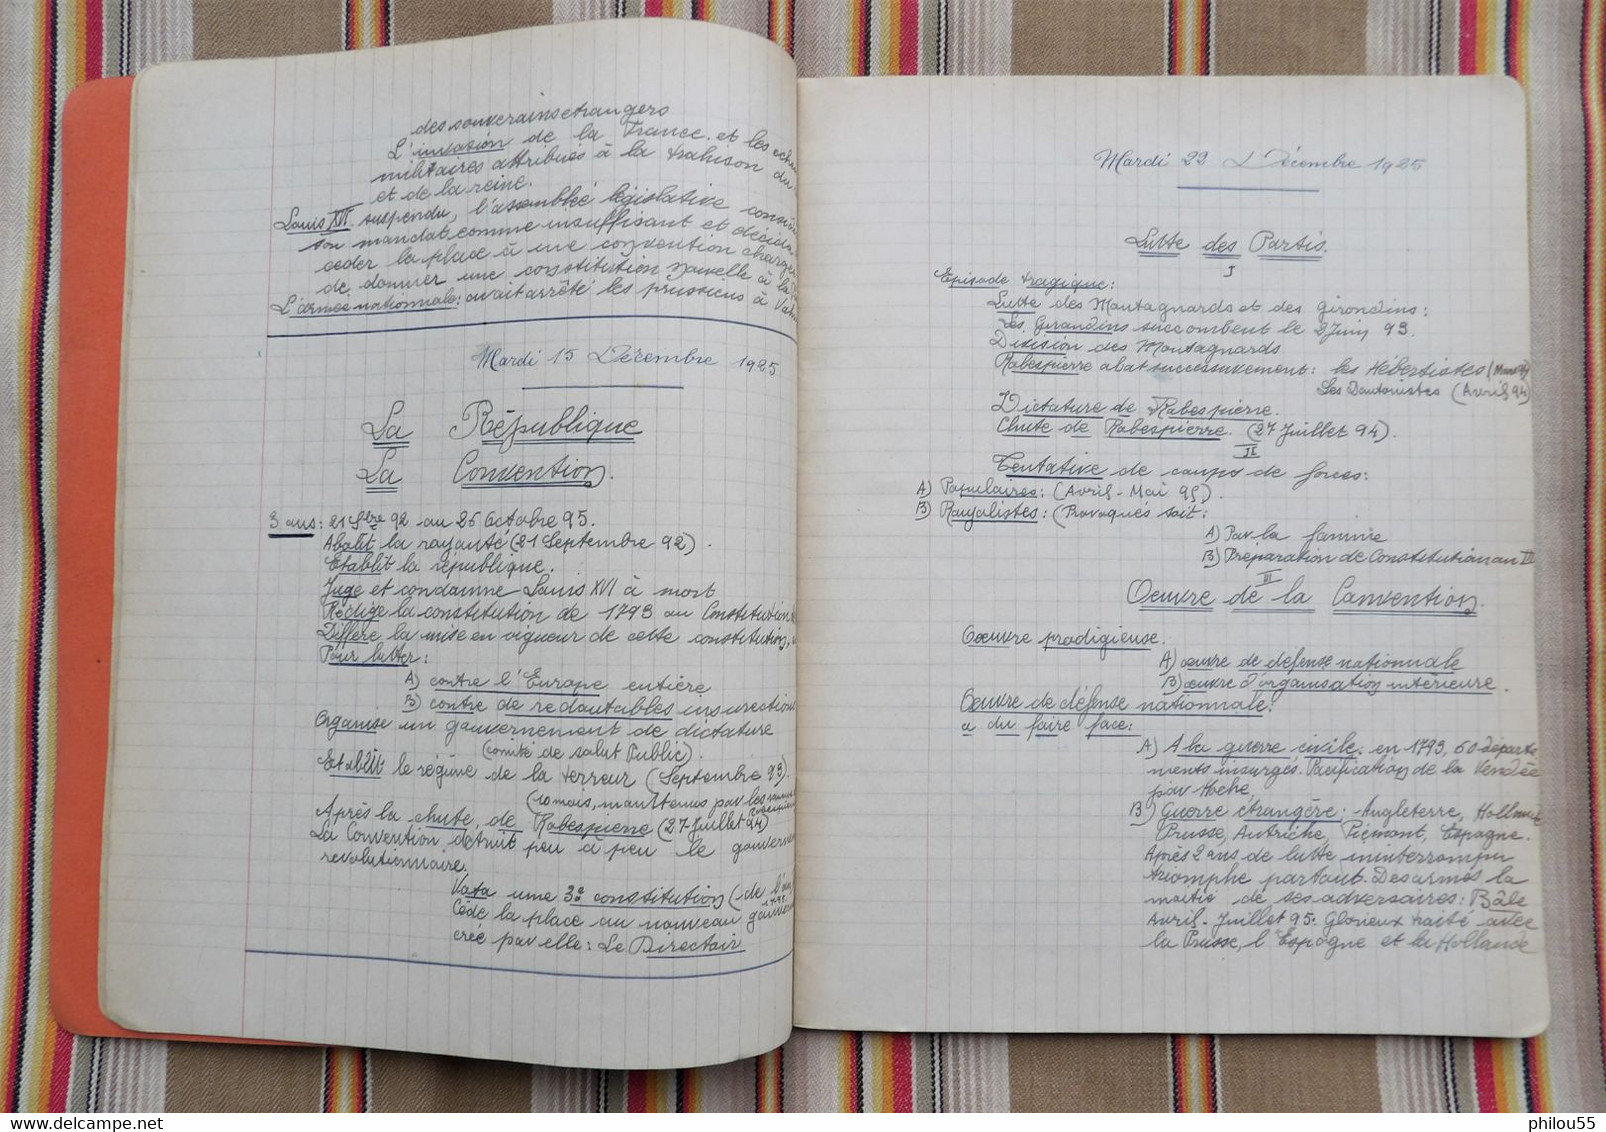 des souverains etrangers
L'invasion de la France et les
militaires attribués à la trahison du
et de la reine.
Louis XVI suspendu, l'assemblée législative
son mandat comme insuffisant et décida
ceder la place à une convention
de donner une constitution nouvelle à la
L'armée nationnale: avait arrêté les prussiens à
Mardi 15 Décembre 1925
La République
La Convention.
3 ans: 21 7bre 92 au 26 Octobre 95.
Abolit la royauté (21 Septembre 92).
Etablit la république.
Juge et condamne Louis XVI à mort
Rédige la constitution de 1793 ou
Diffère la mise en vigueur de cette constitution,
Pour lutter:
A) contre l'Europe entière
B) contre de redoutables insurections
Organise un gouvernement de dictature
(comité de salut Public).
Etablit le régime de la terreur (Septembre 93).
maintenus par les
Après la chute de Robespierre (27 Juillet 94)
La Convention détruit peu à peu le
revolutionnaire.
Vota une 3e constitution (de
Cède la place au nouveau
créé par elle: Le Directoir
Mardi 22 Décembre 1925
Lutte des Partis.
I
Episode tragique:
Lutte des Montagnards et des girondins:
Les Girondins succombent le 2 Juin 93.
Division des Montagnards
Robespierre abat successivement: les Hébertistes (Mars 94)
Les Dantonistes (Avril 94)
Dictature de Robespierre.
Chute de Robespierre. (27 Juillet 94).
II
Tentative de coups de forces:
A) Populaires: (Avril - Mai 95).
B) Royalistes: (Provoqués soit:
A) Par la famine
B) Préparation de Constitution an III
III
Oeuvre de la Convention.
Oeuvre prodigieuse.
A) œuvre de défense nationnale
B) œuvre d'organisation intérieure.
Oeuvre de défense nationnale:
a du faire face:
A) A la guerre civile: en 1793, 60 départe
ments insurgés. Pacification de la Vendée
par Hoche,
B) Guerre étrangère: Angleterre, Hollande
Prusse, Autriche, Piémont, Espagne.
Après 2 ans de lutte ininterrompu
triomphe partout. Desarmés la
moitié de ses adversaires: Bâle
Avril - Juillet 95: Glorieux traité avec
la Prusse, l'Espagne et la Hollande
philou55